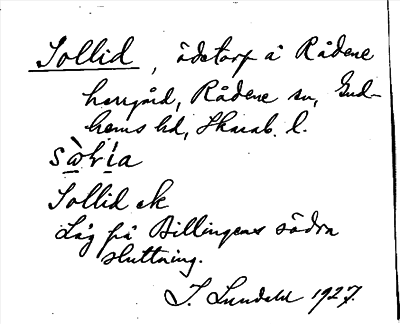 Sollid, ödetorp å Rådene
herrgård, Rådene sn, Gud-
hems hd, Skarab. l.
Sollid ek
Låg på Billingens södra
sluttning.
I. Lundahl 1927.